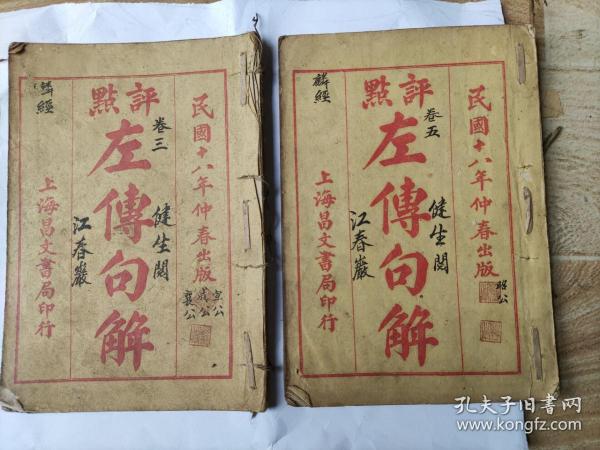 民國十八年仲春出版
評點
左傳句解
上海昌文書局印行
麟經
卷三
健生閱
江春巖
宣公
成公
襄公
民國十八年仲春出版
評點
左傳句解
上海昌文書局印行
麟經
卷五
健生閱
江春巖
昭公
孔夫子旧书网
www.kongfz.com